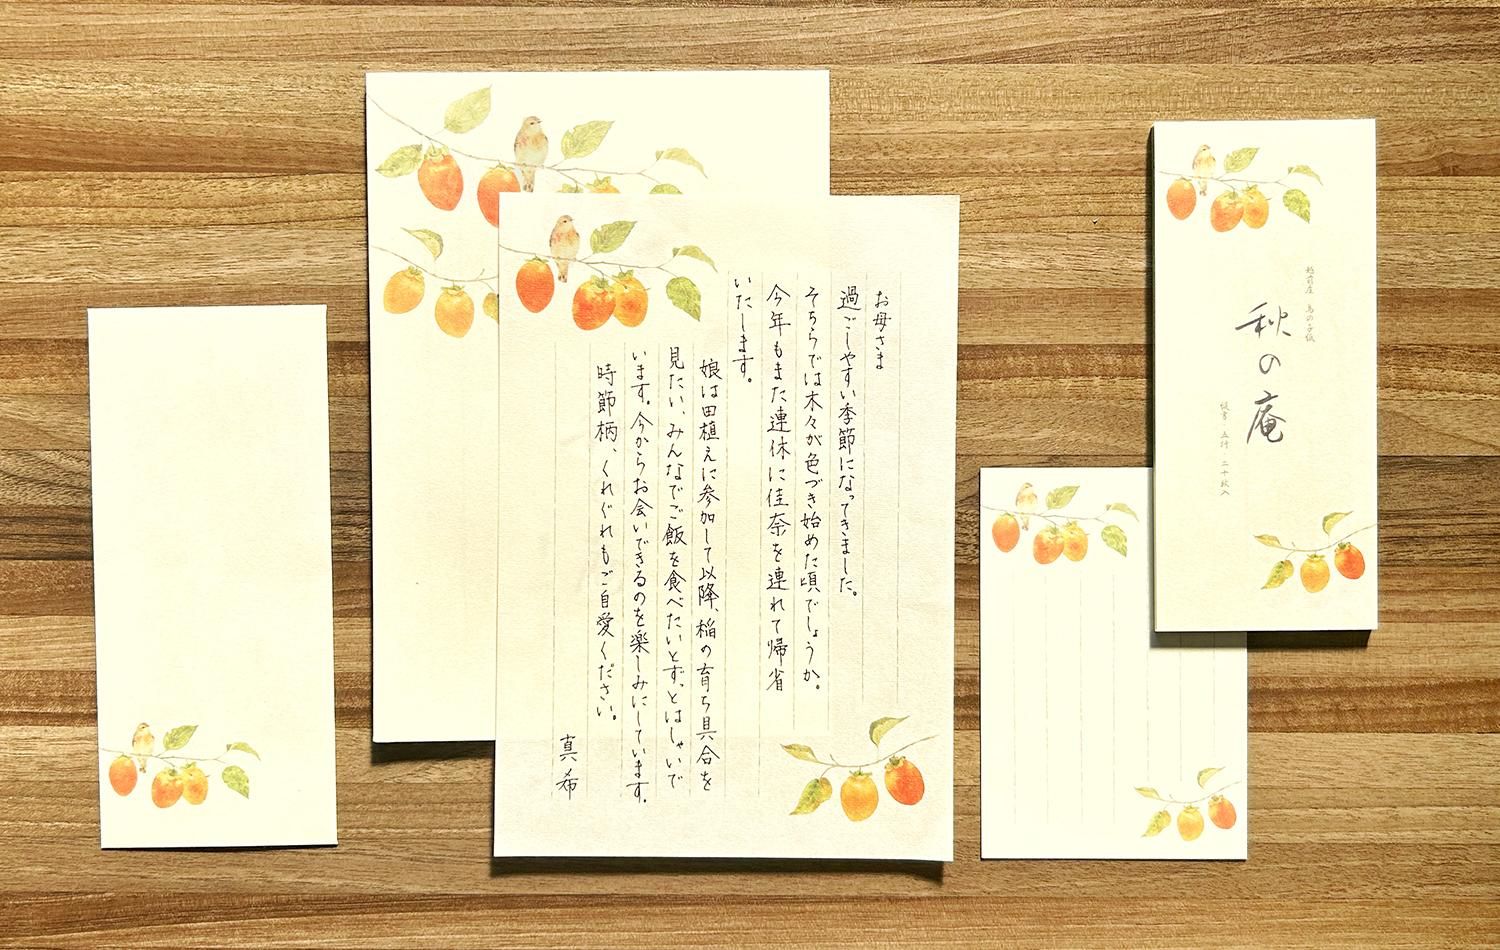 お母さま
過ごしやすい季節になってきました。
そちらでは木々が色づき始めた頃でしょうか。
今年もまた連休に佳奈を連れて帰省
いたします。
娘は田植えに参加して以降、稲の育ち具合を
見たい、みんなでご飯を食べたいとずっとはしゃいで
います。今からお会いできるのを楽しみにしています。
時節柄、くれぐれもご自愛ください。
真希
越前産 鳥の子紙
秋の庵
縦書・五行・二十枚入